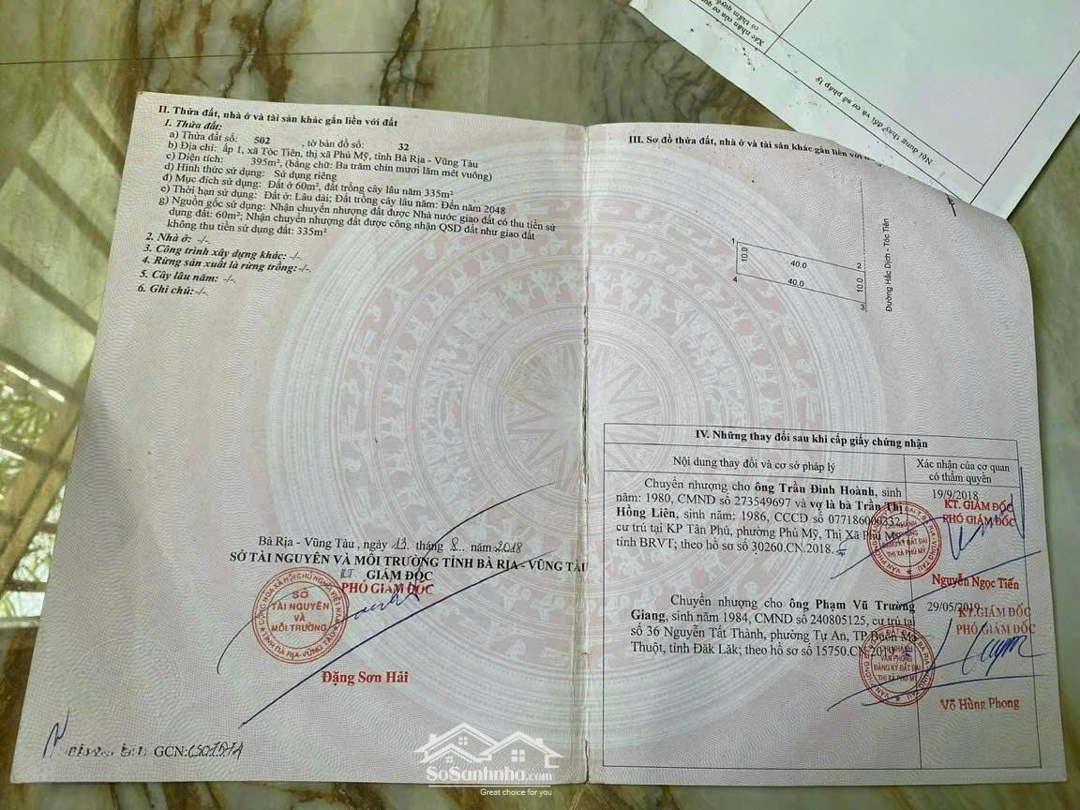 II. Thửa đất, nhà ở và tài sản khác gắn liền với đất
1. Thửa đất:
a) Thửa đất số: 502 , tờ bản đồ số: 32
b) Địa chỉ: ấp 1, xã Tóc Tiên, thị xã Phú Mỹ, tỉnh Bà Rịa - Vũng Tàu
c) Diện tích: 395m², (bằng chữ: Ba trăm chín mươi lăm mét vuông)
d) Hình thức sử dụng: Sử dụng riêng
đ) Mục đích sử dụng: Đất ở 60m², đất trồng cây lâu năm 335m²
e) Thời hạn sử dụng: Đất ở: Lâu dài; Đất trồng cây lâu năm: Đến năm 2048
g) Nguồn gốc sử dụng: Nhận chuyển nhượng đất được Nhà nước giao đất có thu tiền sử
dụng đất: 60m²; Nhận chuyển nhượng đất được công nhận QSD đất như giao đất
không thu tiền sử dụng đất: 335m²
2. Nhà ở: -/-
3. Công trình xây dựng khác: -/-
4. Rừng sản xuất là rừng trồng: -/-
5. Cây lâu năm: -/-
6. Ghi chú: -/-
Bà Rịa - Vũng Tàu , ngày 13 tháng 8 năm 2018
SỞ TÀI NGUYÊN VÀ MÔI TRƯỜNG TỈNH BÀ RỊA - VŨNG TÀU
KT GIÁM ĐỐC
PHÓ GIÁM ĐỐC
SỞ
TÀI NGUYÊN
VÀ
MÔI TRƯỜNG
Đặng Sơn Hải
GCN:
III. Sơ đồ thửa đất, nhà ở và tài sản khác gắn liền với
1
2
3
4
10.0
40.0
40.0
10.0
Đường Hắc Dịch - Tóc Tiên
IV. Những thay đổi sau khi cấp giấy chứng nhận
Nội dung thay đổi và cơ sở pháp lý
Xác nhận của cơ quan
có thẩm quyền
Chuyển nhượng cho ông Trần Đình Hoành, sinh
năm: 1980, CMND số 273549697 và vợ là bà Trần Thị
Hồng Liên, sinh năm: 1986, CCCD số 077186000332
cư trú tại KP Tân Phú, phường Phú Mỹ, Thị Xã Phú Mỹ
tỉnh BRVT; theo hồ sơ số 30260.CN.2018.
19/9/2018
KT. GIÁM ĐỐC
PHÓ GIÁM ĐỐC
Nguyễn Ngọc Tiến
Chuyển nhượng cho ông Phạm Vũ Trường
Giang, sinh năm 1984, CMND số 240805125, cư trú tại
số 36 Nguyễn Tất Thành, phường Tự An, TP.Buôn Ma
Thuột, tỉnh Đăk Lăk; theo hồ sơ số 15750.CN.2019
29/05/2019
KT.GIÁM ĐỐC
PHÓ GIÁM ĐỐC
VĂN PHÒNG
ĐĂNG KÝ ĐẤT ĐAI
THỊ XÃ PHÚ MỸ
Võ Hùng Phong
Xác nhận của cơ
có thẩm quyền
Nội dung thay đổi và cơ sở pháp lý
SoSanhnha.com
Great choice for you